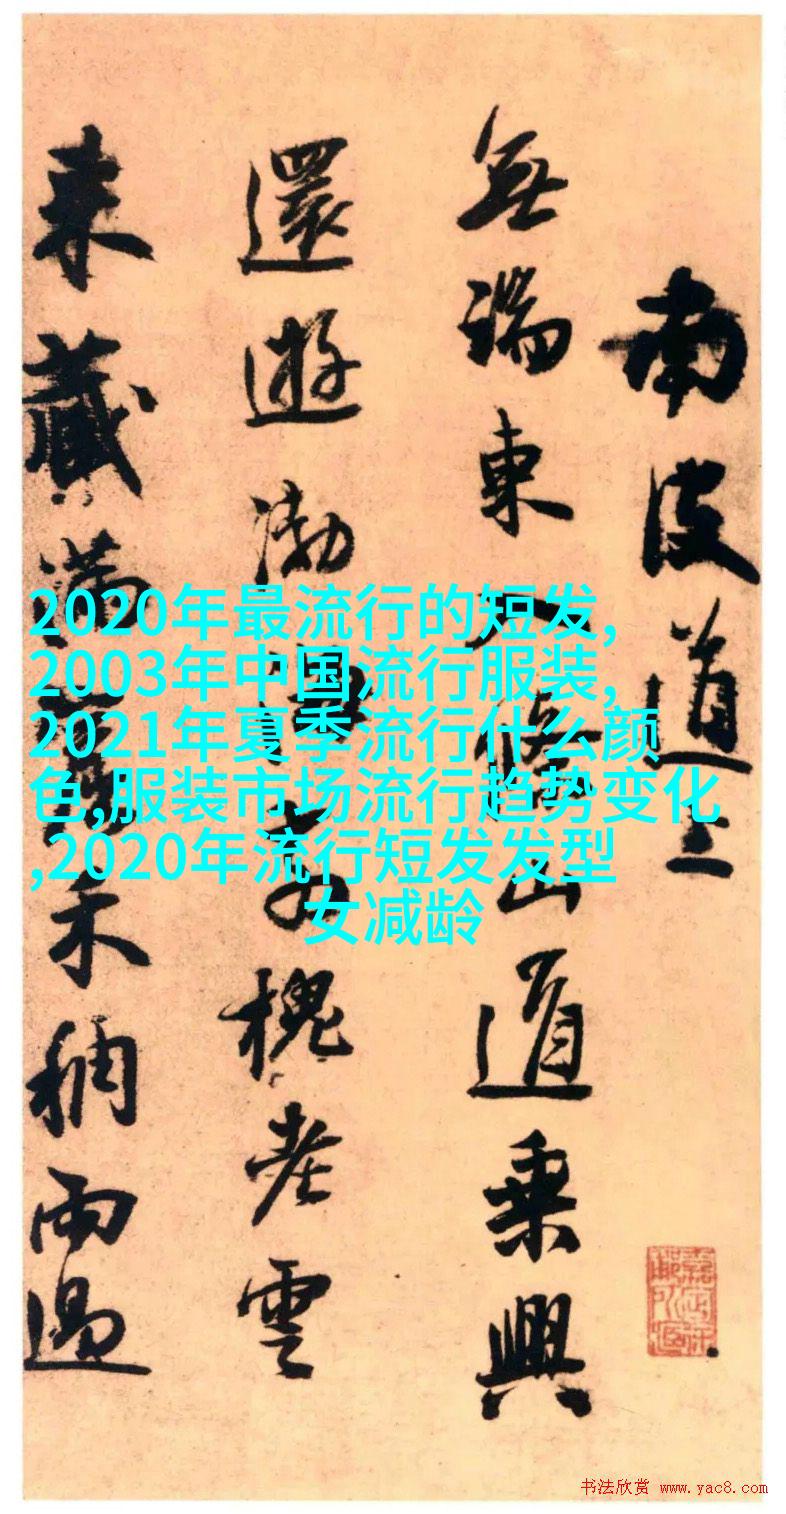 南陂道上
無端東入條山道乘興
還遊渤澥
槐老雲
来藏滿
禾稠雨過
2020年最流行的短发,
2003年中国流行服装,
2021年夏季流行什么颜
色,服装市场流行趋势变化
,2020年流行短发发型
女减龄
书法欣赏 www.yac8.com